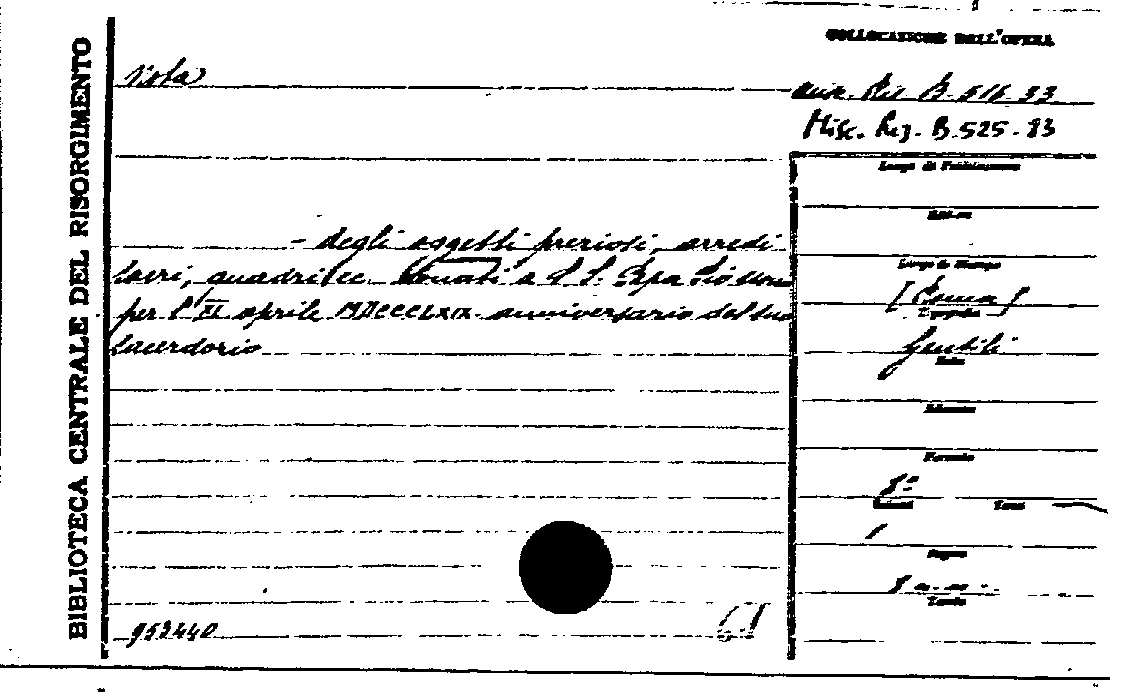 BIBLIOTECA CENTRALE DEL RISORGIMENTO
COLLOCAZIONE DELL'OPERA
Nota
Misc. Ris. B. 516. 33
Misc. Risg. B. 525 - 83
Luogo di Pubblicazione
- degli oggetti preziosi, arredi
Editore
sacri, quadri, ec. donati a S. S. Papa Pio nono
Luogo di Stampa
[Roma]
Tipografia
per l' XI aprile MDCCCLXIX anniversario del suo
Gentili
sacerdozio
Data
Edizione
Formato
8°
Volumi
Tomi
1
Pagine
8 n. n.
Tavole
952440